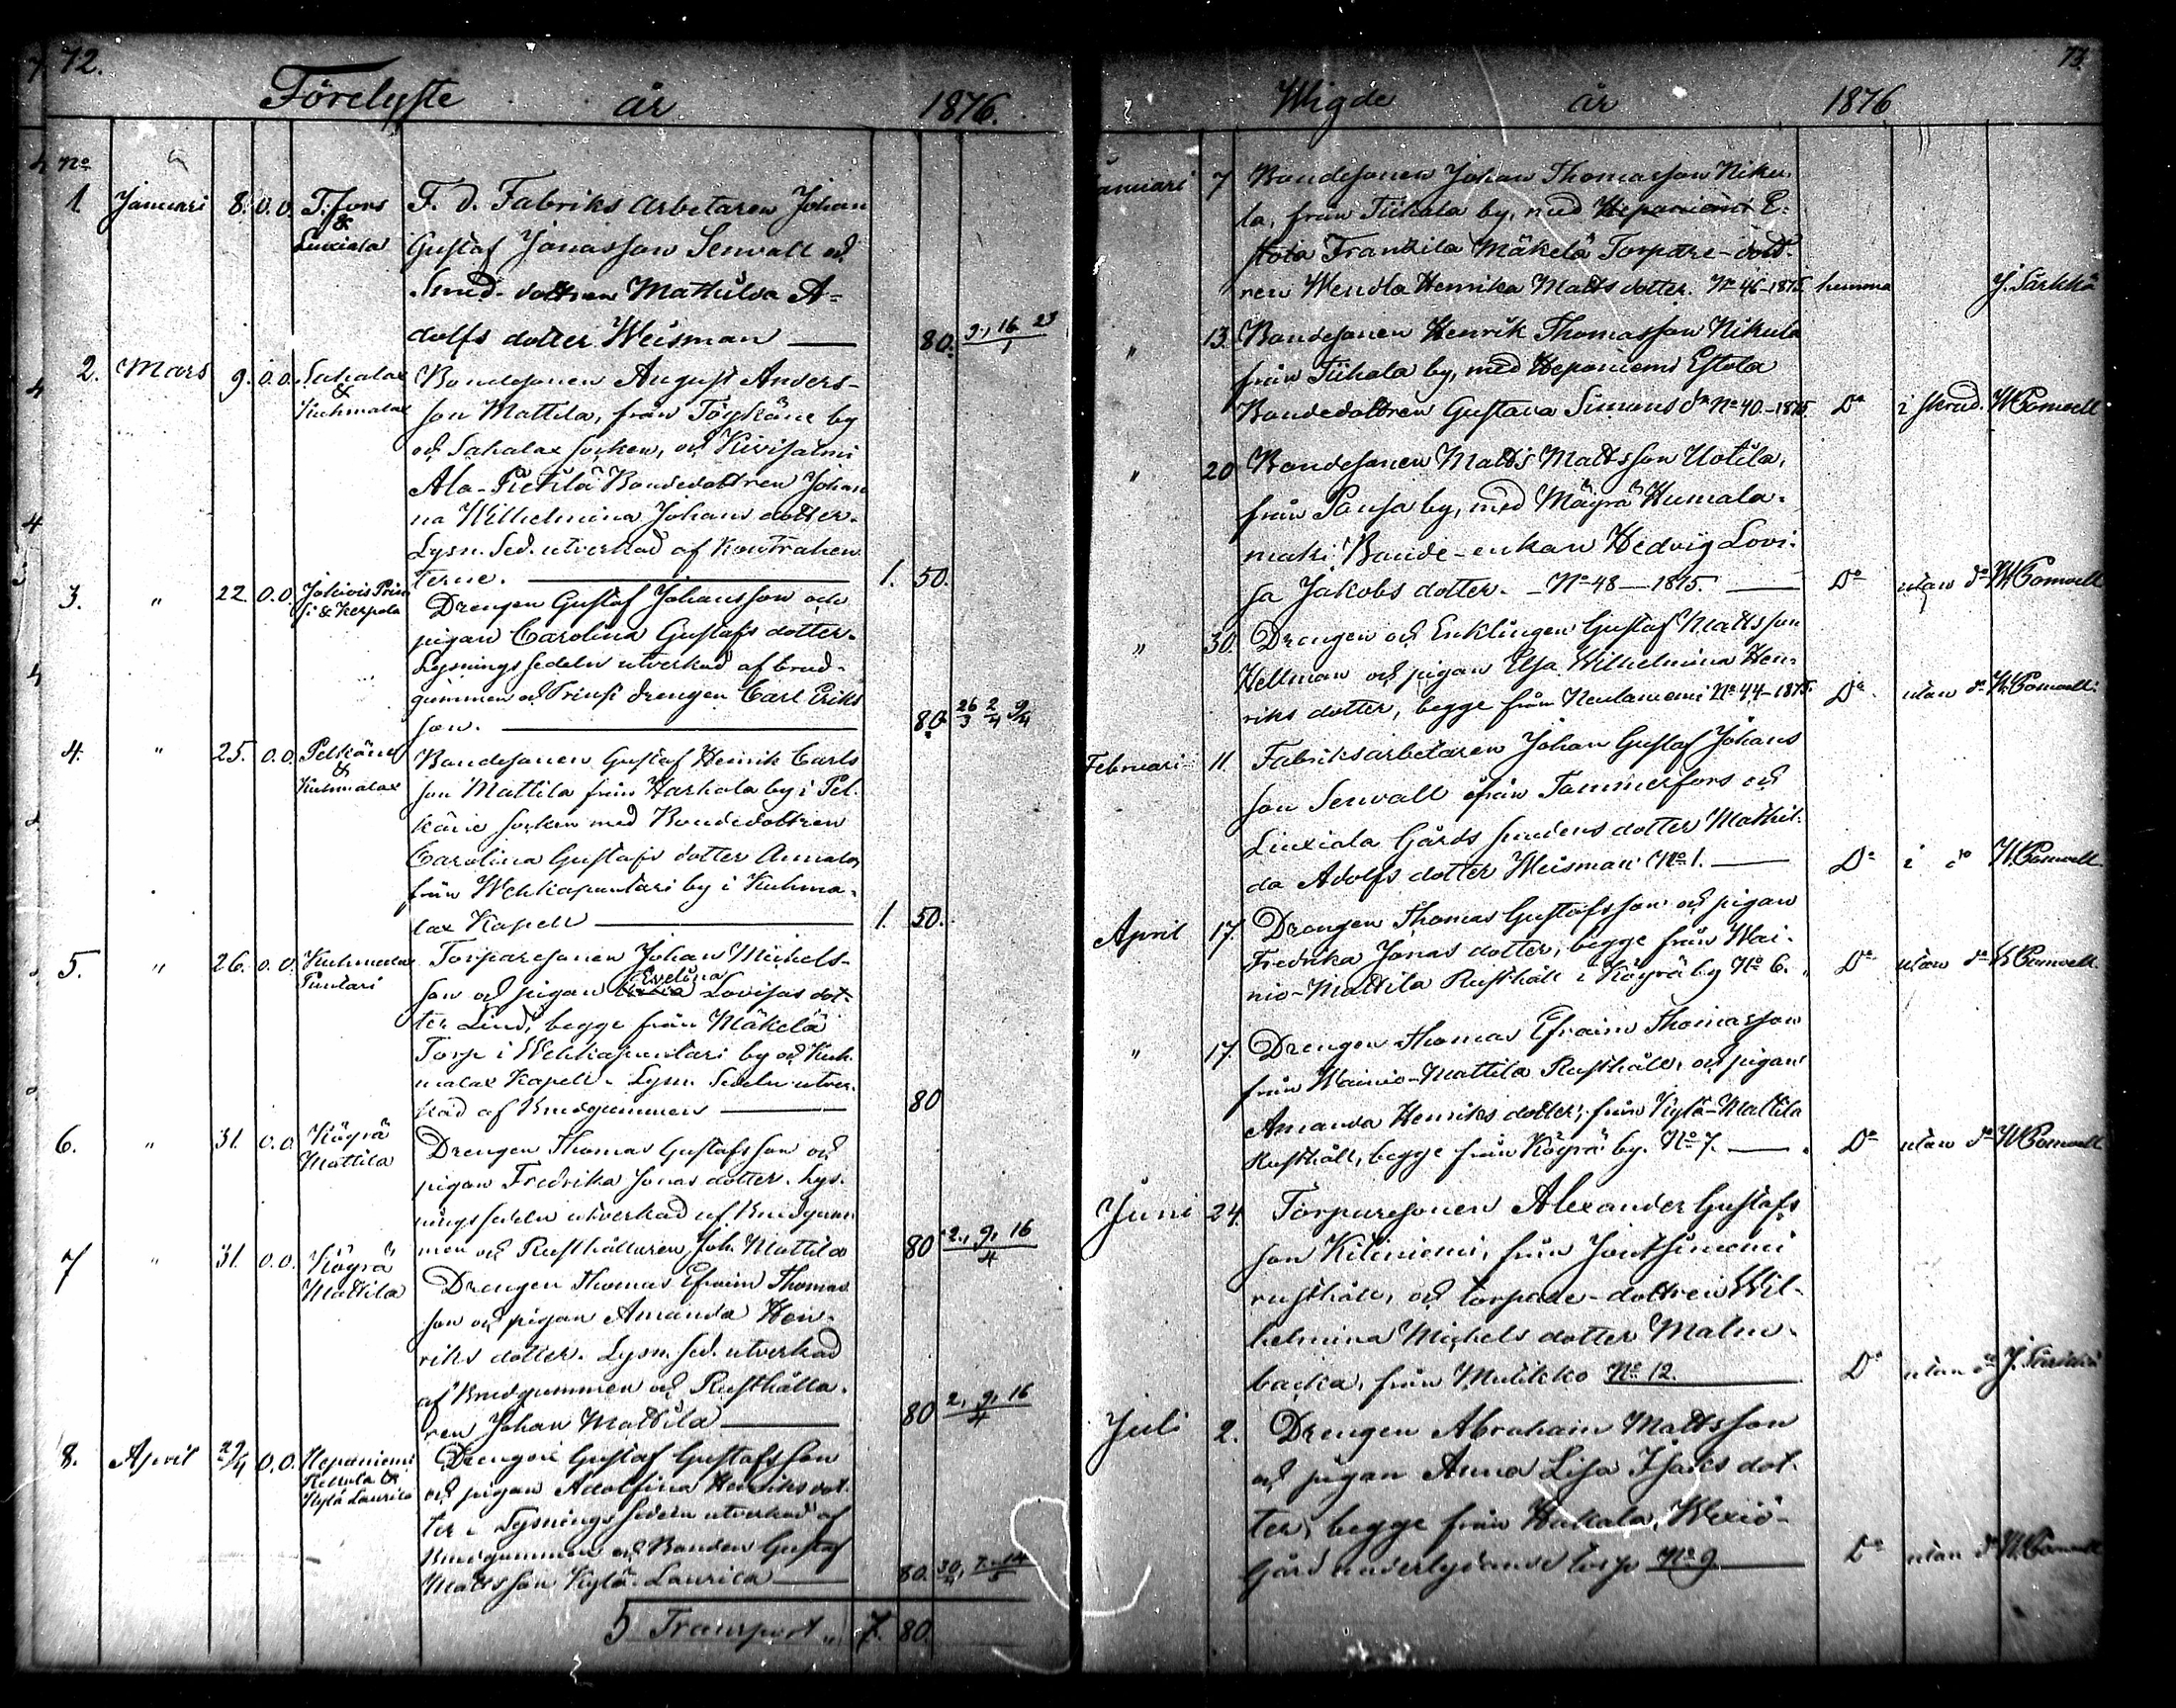 72.
Förelyste år 1876.
No
1. Januari 8. 0.0. T:fors & Liuxiala
F. D. Fabriks Arbetaren Johan
Gustaf Jonasson Senvall och
Smed-dottren Mathilda A-
dolfs dotter Weisman — 80. 9., 16. 23/1
2. Mars 9. 0.0. Sahalax & Kuhmalax
Bondesonen August Anders-
son Mattila, från by
och Sahalax socken, och Kivisalmi
Ala-Pietilä Bondedottren Johan
na Wilhelmina Johans dotter.
Lysn. Sed. utverkad af Kontrahen
terne. — 1. 50.
3. " 22. 0.0. & Kerpola
Drengen Gustaf Johansson och
pigan Carolina Gustafs dotter.
Lysningssedeln utverkad af brud-
gummen och Prinsi drengen Carl Eriks
son. — 80. 26/3 2/4 9/4
4. " 25. 0.0. Pelkäne & Kuhmalax
Bondesonen Gustaf Henrik Carls
son Mattila från Harhala by i Pel-
käne socken med Bondedottren
Carolina Gustafs dotter Annala,
från Wehkapuntari by i Kuhma-
lax Kapell — 1. 50.
5. " 26. 0.0. Kuhmalax Puntari
Torparesonen Johan Michels-
son och pigan Evelina Lovisas dot-
ter Lind, begge från Mäkelä
Torp i Wehkapuntari by och Kuh-
malax Kapell. Lysn. Sedeln utver-
kad af Brudgummen — 80
6. " 31. 0.0. Köyrä Mattila
Drengen Thomas Gustafsson och
pigan Fredrika Jonas dotter. Lys-
ningssedeln utverkad af Brudgum
men och Rusthållaren Joh. Mattila 80 2., 9, 16/4
7 " 31. 0.0. Köyrä Mattila
Drengen Thomas Efraim Thomas
son och pigan Amanda Hen-
riks dotter. Lysn. sed. utverkad
af Brudgummen och Rusthålla-
ren Johan Mattila — 80 2, 9, 16/4
8. April 29/4 0.0. Heponiemi & Kylä Laurila
Drengen Gustaf Gustafsson
och pigan Adolfina Henriks dot-
ter. Lysningssedeln utverkad af
Brudgummen och Bonden Gustaf
Mattsson Kylä-Laurila — 80. 30/4, 7. 14/5
Transport " 7. 80.
73.
Wigde år 1876
Januari 7 Bondesonen Johan Thomasson Niku-
la, från Tiihala by, med Heponiemi E-
stola Franzila Mäkelä Torpare-dott-
ren Wendla Henrika Matts dotter. No 46-1875 hemma J. Särkkä
" 13. Bondesonen Henrik Thomasson Nikula
från Tiihala by, med Heponiemi Estola
Bondedottren Gustava Simons dr No 40.-1875 Do i skrud.
" 20 Bondesonen Matts Mattsson Uotila,
från Pansa by, med Mäyrä Humala-
mäki Bonde-enkan Hedvig Lovi-
sa Jakobs dotter. - No 48 - 1875. — Do utan do
" 30. Drengen och Enklingen Gustaf Mattsson
Hellman och pigan Elsa Wilhelmina Hen-
riks dotter, begge från No 44-1875. Do utan do
Februari 11. Fabriksarbetaren Johan Gustaf Johans
son Senvall från Tammerfors och
Liuxiala Gårds smedens dotter Mathil-
da Adolfs dotter Weisman No 1. — Do i do
April 17. Drengen Thomas Gustafsson och pigan
Fredrika Jonas dotter, begge från Wai-
nio-Mattila Rusthåll i Köyrä by No 6. Do utan do
" 17. Drengen Thomas Efraim Thomasson
från Wainio-Mattila Rusthåll, och pigan
Amanda Henriks dotter, från Kylä-Mattila
Rusthåll, begge från Köyrä by. No 7. — Do utan do
Juni 24. Torparesonen Alexander Gustafs
son Kitiniemi, från
rusthåll, och torpare-dottren Wil-
helmina Michels dotter Malm-
backa, från Mulikko No 12. — Do utan do
Juli 2. Drengen Abraham Mattsson
och pigan Anna Lisa Isaks dot-
ter, begge från Hukala, Wexiö-
Gård underlydande torp No 9 — Do utan do